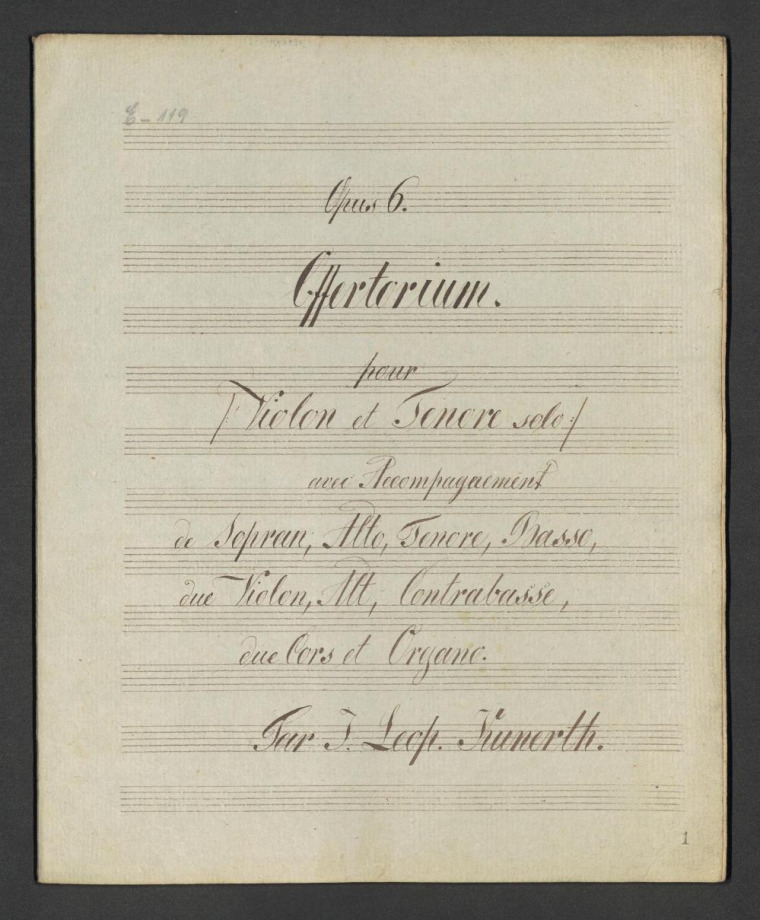 E-119
Opus 6.
Offertorium.
pour
/: Violon et Tenore solo :/
avec Accompagnement
de Sopran, Alto, Tenore, Basso,
due Violon, Alt, Contrabasse,
due Cors et Organo.
Par J. Leop. Kunerth.
1